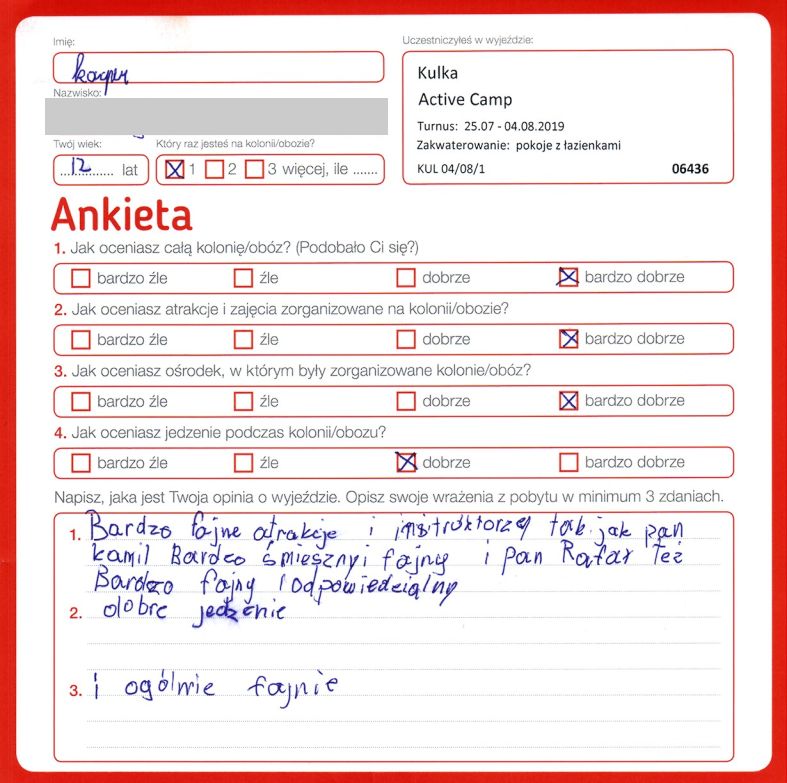 Imię:
kacper
Nazwisko:
Twój wiek:
12 lat
Który raz jesteś na kolonii/obozie?
1 2 3 więcej, ile .......
Uczestniczyłeś w wyjeździe:
Kulka
Active Camp
Turnus: 25.07 - 04.08.2019
Zakwaterowanie: pokoje z łazienkami
KUL 04/08/1 06436
Ankieta
1. Jak oceniasz całą kolonię/obóz? (Podobało Ci się?)
bardzo źle źle dobrze bardzo dobrze
2. Jak oceniasz atrakcje i zajęcia zorganizowane na kolonii/obozie?
bardzo źle źle dobrze bardzo dobrze
3. Jak oceniasz ośrodek, w którym były zorganizowane kolonie/obóz?
bardzo źle źle dobrze bardzo dobrze
4. Jak oceniasz jedzenie podczas kolonii/obozu?
bardzo źle źle dobrze bardzo dobrze
Napisz, jaka jest Twoja opinia o wyjeździe. Opisz swoje wrażenia z pobytu w minimum 3 zdaniach.
1. Bardzo fajne atrakcje i instruktorzy tak jak pan
kamil Bardzo śmieszny i fajny i pan Rafał Też
Bardzo fajny i odpowiedzialny
2. dobre jedzenie
3. i ogólnie fajnie